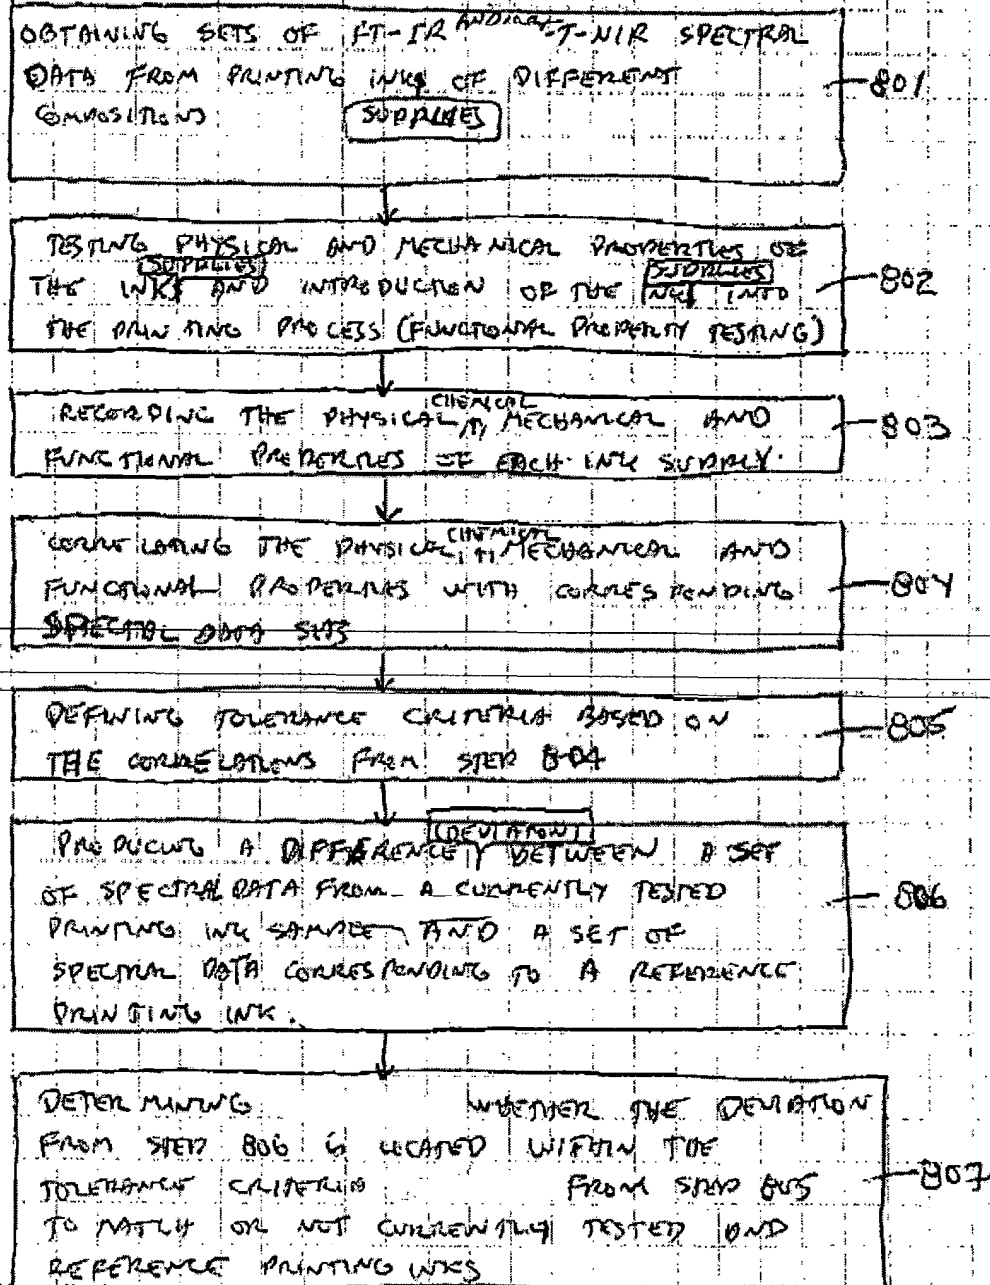 OBTAINING SETS OF FT-IR AND/OR FT-NIR SPECTRAL
DATA FROM PRINTING INK OF DIFFERENT — 801
COMPOSITIONS SUPPLIES
TESTING PHYSICAL AND MECHANICAL PROPERTIES OF
SUPPLIES SUPPLIES
THE INK AND INTRODUCTION OF THE INK INTO — 802
THE PRINTING PROCESS (FUNCTIONAL PROPERTY TESTING)
CHEMICAL
RECORDING THE PHYSICAL, MECHANICAL AND — 803
FUNCTIONAL PROPERTIES OF EACH INK SUPPLY.
CHEMICAL
CORRELATING THE PHYSICAL, MECHANICAL AND
FUNCTIONAL PROPERTIES WITH CORRESPONDING — 804
SPECTRAL DATA SETS
DEFINING TOLERANCE CRITERIA BASED ON — 805
THE CORRELATIONS FROM STEP 804
(DEVIATION)
PRODUCING A DIFFERENCE BETWEEN A SET
OF SPECTRAL DATA FROM A CURRENTLY TESTED — 806
PRINTING INK SAMPLE AND A SET OF
SPECTRAL DATA CORRESPONDING TO A REFERENCE
PRINTING INK.
DETERMINING WHETHER THE DEVIATION
FROM STEP 806 IS LOCATED WITHIN THE
TOLERANCE CRITERIA FROM STEP 805 — 807
TO MATCH OR NOT CURRENTLY TESTED AND
REFERENCE PRINTING INKS